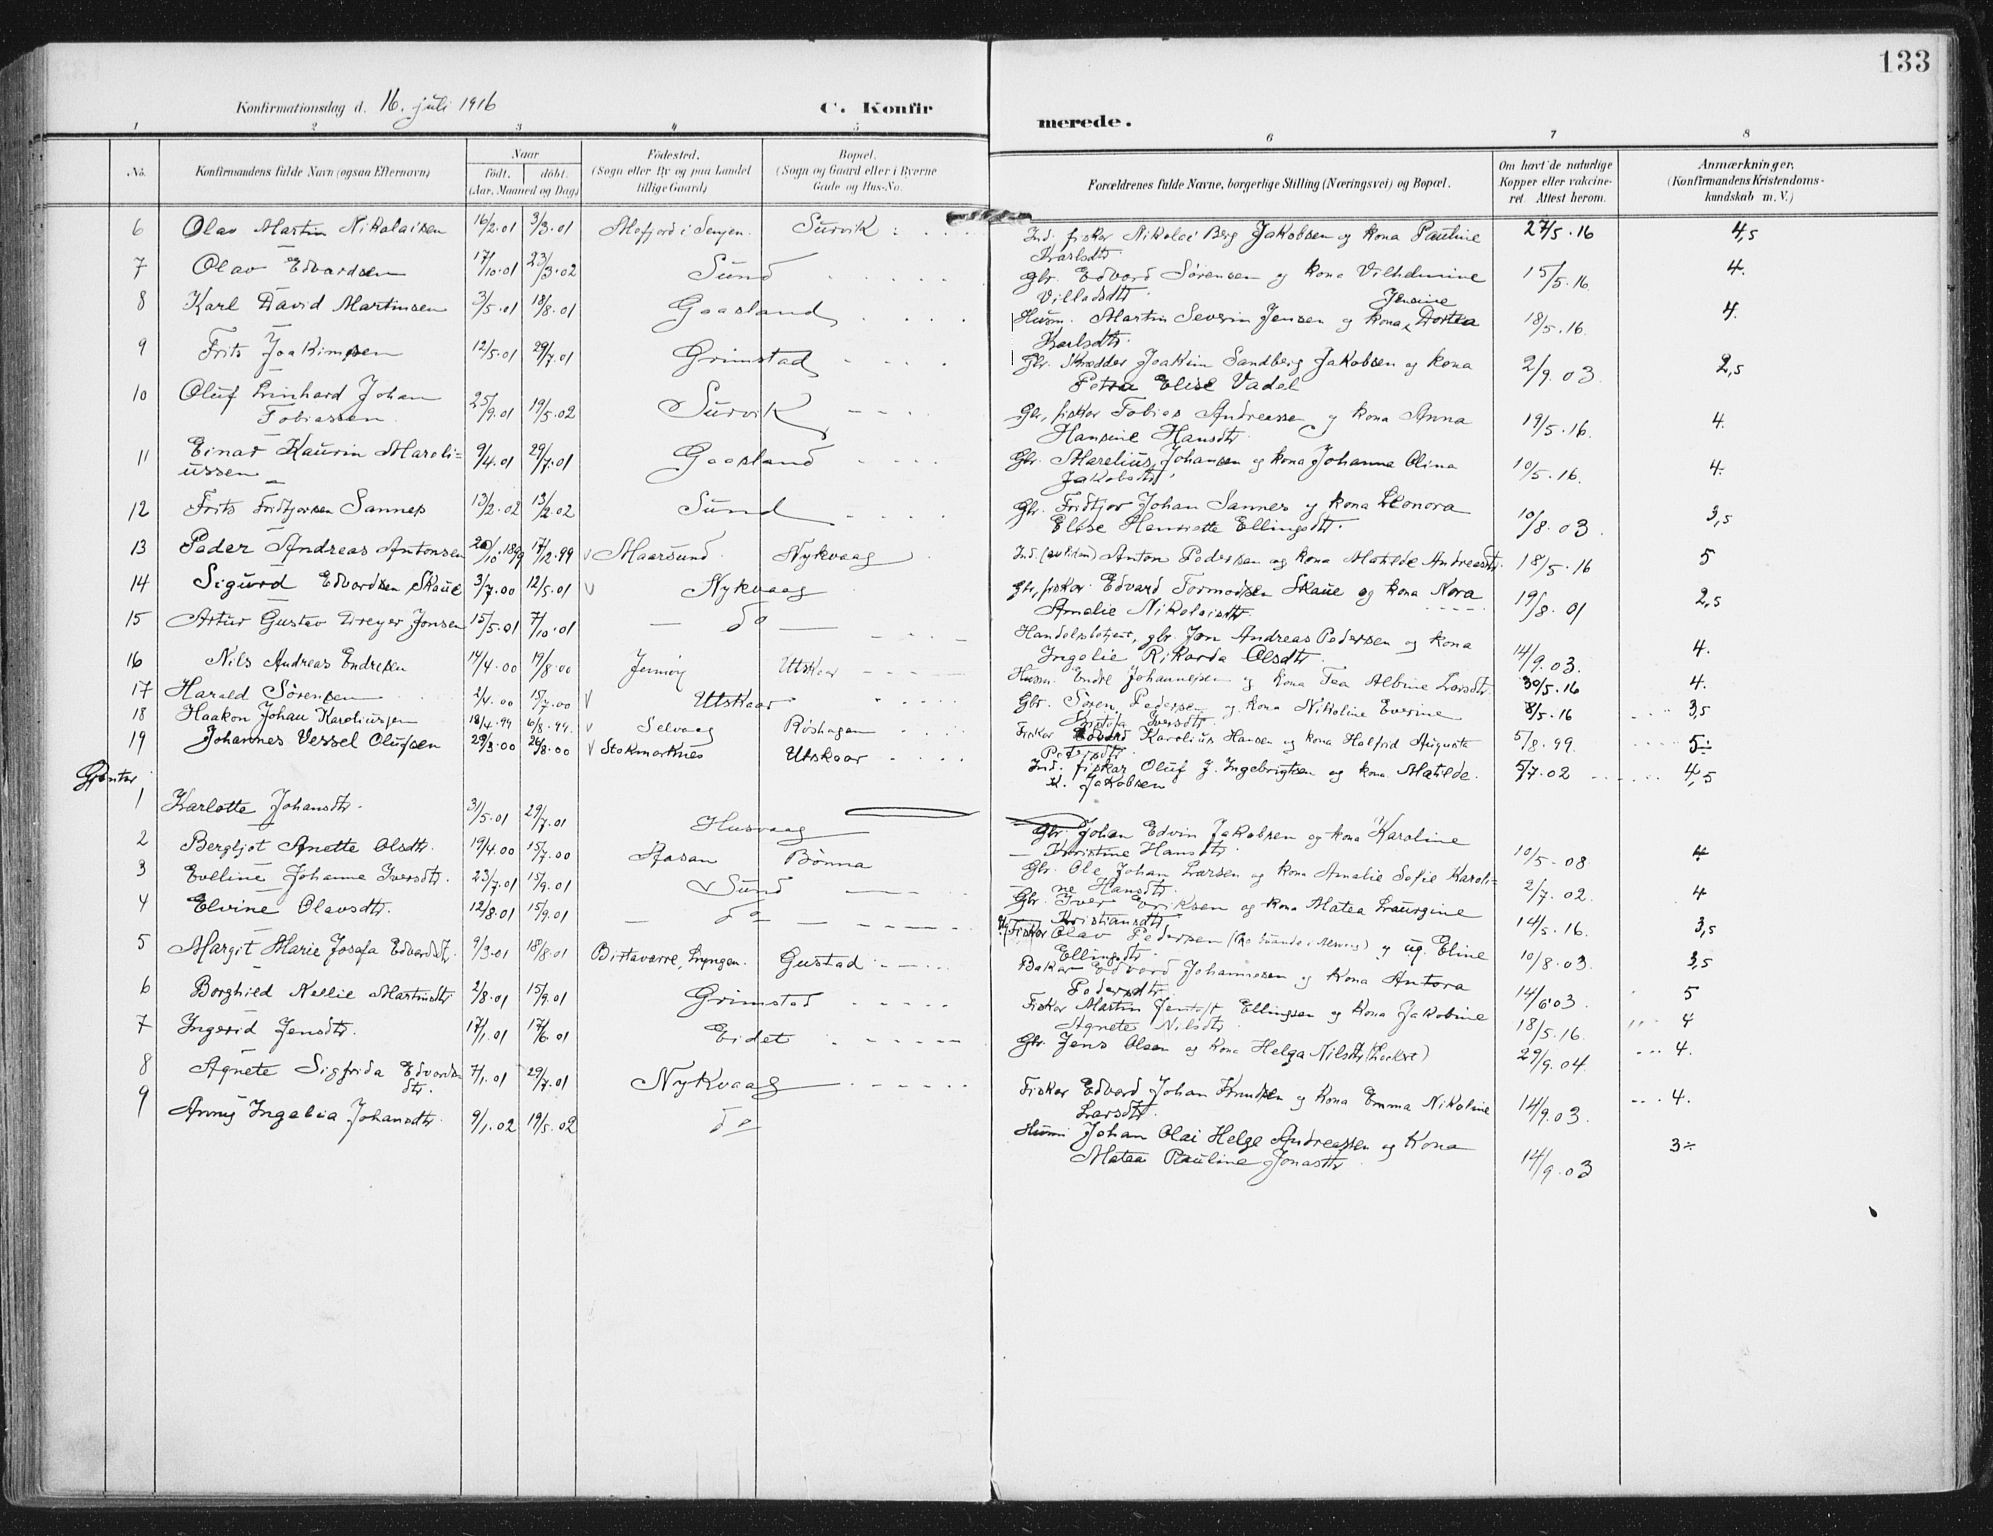 133
Konfirmationsdag d. 16. juli 1916 C. Konfir
merede.
1 2 3 4 5 6 7 8
No. Konfirmandens fulde Navn (ogsaa Efternavn) Naar födt. döbt. (Aar, Maaned og Dag) Födested. (Sogn eller By og paa Landet tillige Gaard) Bopæl. (Sogn og Gaard eller i Byerne Gade og Hus-No.
Forældrenes fulde Navne, borgerlige Stilling (Næringsvei) og Bopæl. Om havt de naturlige Kopper eller vakcineret. Attest herom. Anmærkninger. (Konfirmandens Kristendomskundskab m. V.)
6 Olav Martin Nikolaisen 16/2.01 3/3.01 Mefjord i Senjen Survik Ind. fisker Nikolai Berg Jakobsen og kona Pauline 27/5.16 4,5
Karlsdtr.
7 Olav Edvardsen 17/10.01 23/3.02 Sund Gbr. Edvard Sørensen og kona Vilhelmine 15/5.16. 4.
Villadsdtr.
8 Karl David Martinsen 3/5.01 18/8.01 Gaasland Husm. Martin Severin Jensen og kona Jensine Dortea 18/5.16. 4.
Karlsdtr.
9 Frits Joakimsen 12/5.01 29/7.01 Grimstad Gbr. Skrædder Joakim Sandberg Jakobsen og kona 2/9.03 2,5
Petra Elise Vadel
10 Oluf Linhard Johan 25/9.01 19/5.02 Survik Gbr. fisker Tobias Andreassen og kona Anna 19/5.16. 4.
Tobiassen Hansine Hansdtr.
11 Einar Kaurin Mareli= 9/4.01 29/7.01 Gaasland Gbr. Marelius Johansen og kona Johanna Olina 10/5.16. 4.
ussen Jakobsdtr.
12 Frits Fridtjofsen Sannes 13/2.02 13/2.02 Sund Gbr. Fridtjov Johan Sannes og kona Leonora 10/8.03. 3,5
Elise Henriette Ellingsdtr.
13 Peder Andreas Antonsen 20/10.1899 17/12.99 v Maarsund Nykvaag Ind. Anton Pedersen og kona Matilde Andreasdtr. 18/5.16 5
14 Sigurd Edvardsen Skaue 3/7.00 12/5.01 v Nykvaag Gbr, fisker Edvard Tormodsen Skaue og kona Nora 19/8.01 2,5
Amalie Nikolaisdtr.
15 Artur Gustav Dreyer Jonsen 15/5.01 7/10.01 — do — Handelsbetjent, gbr. Jon Andreas Pedersen og kona 14/9.03. 4.
Ingelie Rikarda Olsdtr.
16 Nils Andreas Endresen 14/4.00 19/8.00 Utskor Husm. Endre Johannesen og kona Tea Albine Larsdtr. 30/5.16 4.
17 Harald Sørensen 2/4.00 15/7.00 v Utskor Gbr. Søren Pedersen og kona Nikoline Everine 8/5.16 3,5
Iversdtr.
18 Haakon Johan Karoliussen 18/4.99 6/8.99. v Selvaag Røshagen Fisker Edvard Karolius Hansen og kona Halfrid Augusta 5/8.99. 5÷
Petersdtr.
19 Johannes Vessel Olufsen 29/3.00 26/8.00 v Stokmarknes Utskor Ind. fisker Oluf J. Ingebrigtsen og kona Matilde 5/7.02 4,5
K. Jakobsen
Gjenter
1 Karlotte Johansdtr. 31/5.01 29/7.01 Husvaag Gbr. Johan Edvin Jakobsen og kona Karoline 10/5.08 4
Kristine Hansdtr.
2 Bergljot Anette Olsdtr. 19/4.00 15/7.00 Aasan Bønna Gbr. Ole Johan Larsen og kona Amalie Sofie Karoli= 2/7.02. 4
ne Hansdtr.
3 Eveline Johanne Iversdtr. 23/7.01 15/9.01 Sund Gbr. Iver Eriksen og kona Matea Laurgine 14/5.16. 3,5
Kristiansdtr.
4 Elvine Olavsdtr. 12/8.01 15/9.01 — do — Fisker Olav Pedersen og ug. Eline 10/8.03. 3,5
Ellingsdtr.
5 Margit Marie Josefa Edvardsdtr. 9/3.01 18/8.01 Birtavarre, Lyngen. Gustad Baker Edvard Johannesen og kona Antora 14/6.03. 5
Pedersdtr.
6 Borghild Nellie Martinsdtr. 2/8.01 15/9.01 Grimstad Fisker Martin Jentoft Ellingsen og kona Jakobine 18/5.16. 4
Agnete Nilsdtr.
7 Ingerid Jensdtr. 17/1.01 17/6.01 Eidet Gbr. Jens Olsen og kona Helga Nilsdtr. 29/9.04. 4.
8 Agnete Sigfrida Edvards= 7/1.01 29/7.01 Nykvaag Fisker Edvard Johan Knudsen og kona Emma Nikoline 14/9.03. 4.
dtr. Larsdtr.
9 Anny Ingebia Johansdtr. 9/1.02 19/5.02 do Husm. Johan Olai Helge Andreassen og Kona 14/9.03 3÷
Matea Pauline Jonasdtr.